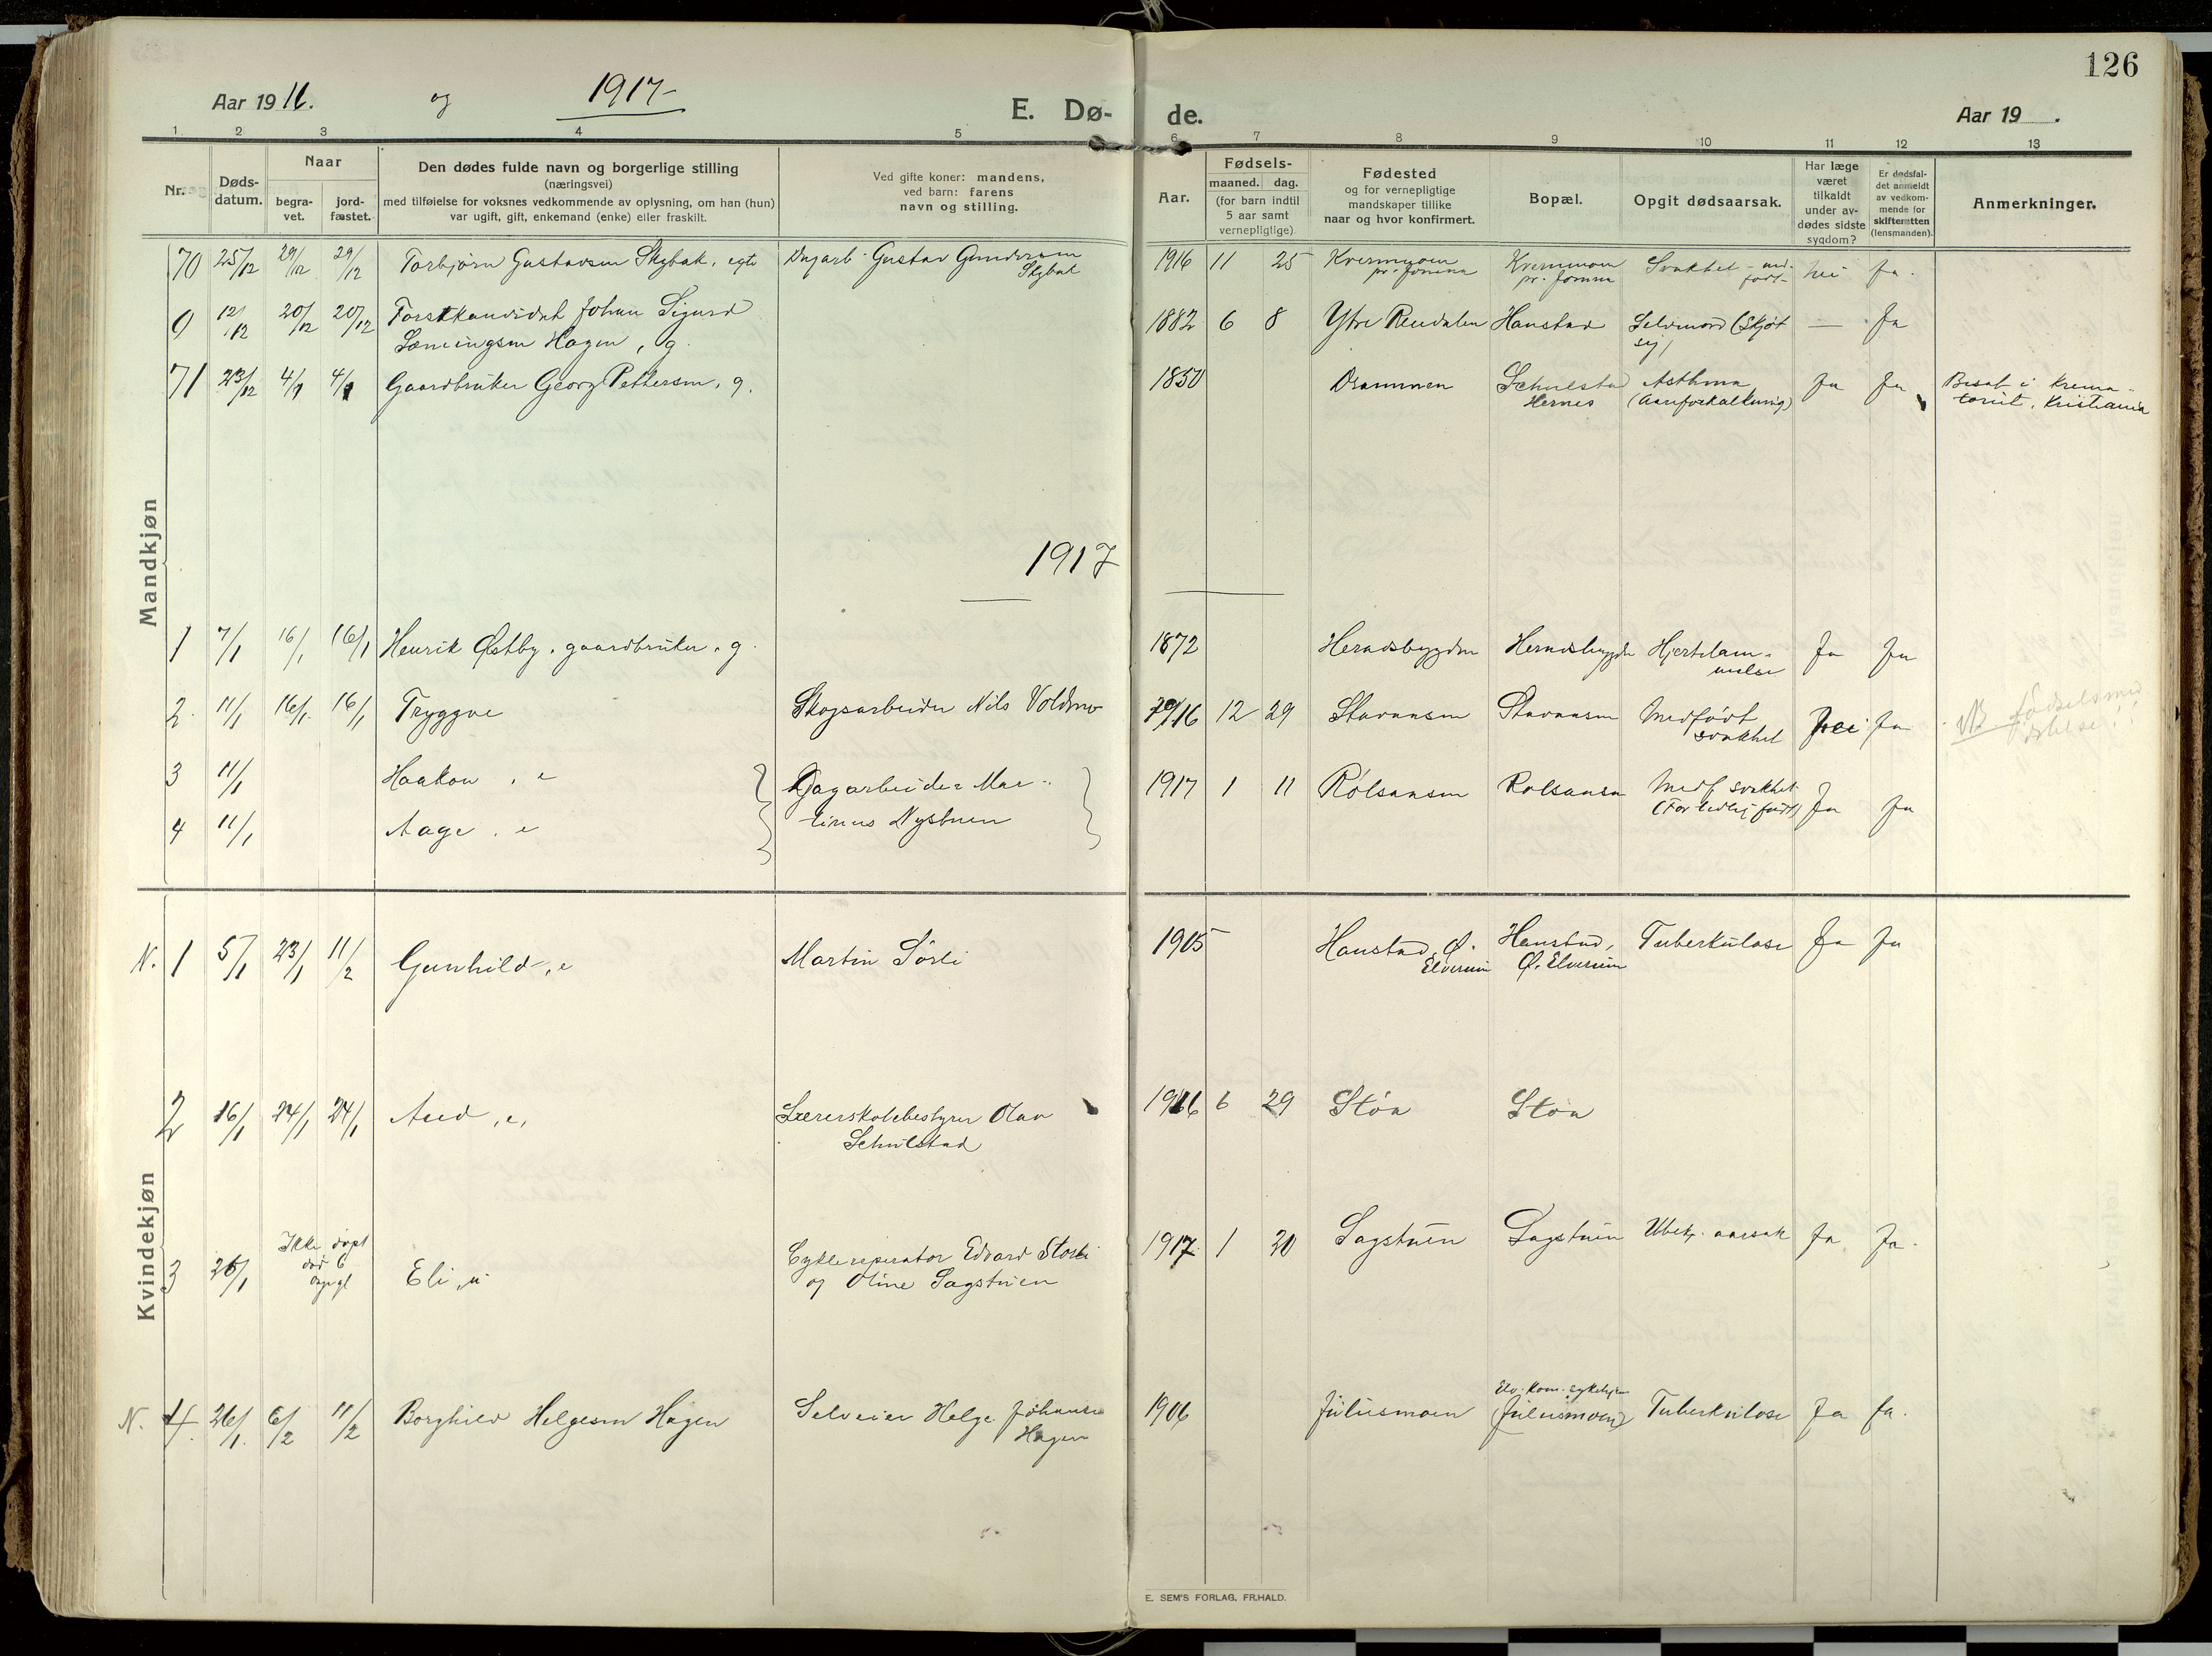 126
Aar 19 16. og 1917
E. Dø- de.
Aar 19 .
1 2 3 4 5 6 7 8 9 10 11 12 13
Nr.
Døds-
datum.
Naar
begra-
vet.
jord-
fæstet.
Den dødes fulde navn og borgerlige stilling
(næringsvei)
med tilføielse for voksnes vedkommende av oplysning, om han (hun)
var ugift, gift, enkemand (enke) eller fraskilt.
Ved gifte koner: mandens,
ved barn: farens
navn og stilling.
Aar.
Fødsels-
maaned. dag.
(for barn indtil
5 aar samt
vernepligtige)
Fødested
og for vernepligtige
mandskaper tillike
naar og hvor konfirmert.
Bopæl.
Opgit dødsaarsak.
Har læge
været
tilkaldt
under av-
dødes sidste
sygdom?
Er dødsfal-
det anmeldt
av vedkom-
mende for
skifteretten
(lensmanden).
Anmerkninger.
Mandkjøn
70 25/12 29/12 29/12 Torbjørn Gustavsen Skybak, egte Dagarb. Gustav Gundersen Skybak 1916 11 25 Kvernmoen pr. Jømna Kvernmoen pr. Jømna Svakhet - med- født - nei ja.
0 12/12 20/12 20/12 Forstkandidat Johan Sigurd
Lænsingsen Hagen, g. 1882 6 8 Ytre Rendalen Hanstad Selvmord (Skjøt sig) — Ja
71 23/12 4/1 4/1 Gaardbruker Georg Pettersen, g. 1850 Drammen Schulstad Hernes Asthma (Aareforkalkning) Ja Ja Bisat i Krema- toriet, Kristiania
1917
1 7/1 16/1 16/1 Henrik Østby, gaardbruker, g. 1872 Heradsbygden Heradsbygden Hjertelam- melse Ja Ja
2. 11/1 16/1. 16/1 Tryggve Skogsarbeider Nils Voldmo 1916 12 29 Stavaasen Stavaasen Medfødt svakhet Nei Ja NB fødselsmed
3 11/1 Haakon, e Dagarbeider Mar- 1917 1 11 Rölsaasen Rolsaasen Medf. svakhet Ja Ja
4 11/1 Aage, e tinus Nystuen (For tidlig født)
Kvindekjøn
N. 1 5/1 23/1 11/2 Gunhild, e Martin Sörli 1905 Hanstad, Ø. Elverum Hanstad, Ø. Elverum Tuberkulose Ja Ja
2 16/1 24/1 24/1 Aud, e, Lærerskolebestyrer Olav Schulstad 1916 6 29 Stöa Stöa
3 26/1 Ikke døpt død 6 dage gl Eli, u Cyklereperatør Edvard Storli
og Oline Sagstuen 1917 1 20 Sagstuen Sagstuen Ubekj. aarsak Ja Ja.
N. 4. 26/1. 6/2 11/2 Borghild Helgesen Hagen Selveier Helge Johansen Hagen 1906 Julusmoen Elv. kom. sykehjem (Julusmoen) Tuberkulose Ja Ja.
E. SEM'S FORLAG, FR.HALD.